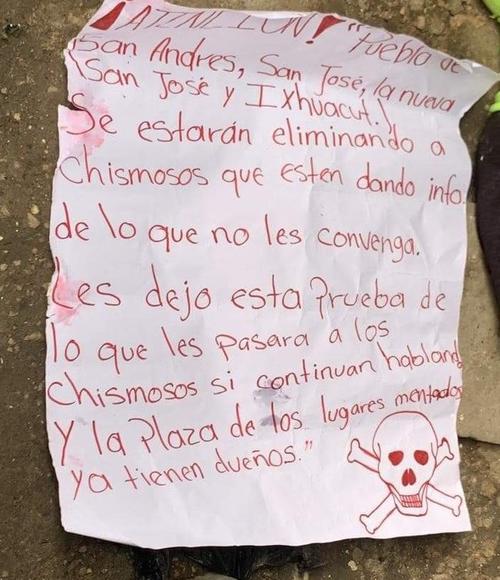 ¡ATENCION! "Pueblo de
San Andres, San José, la nueva
(San José y Ixhuacut.)
Se estarán eliminando a
chismosos que esten dando info.
de lo que no les convenga.
Les dejo esta Prueba de
lo que les pasara a los
chismosos si continuan habland
Y la Plaza de los lugares mentados
ya tienen dueños."